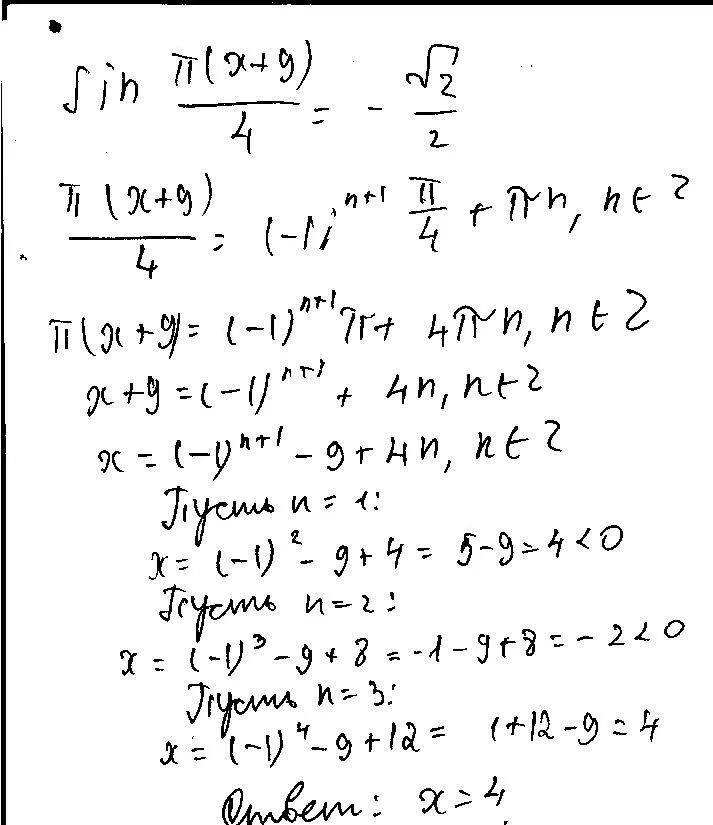 sin π(x+9)/4 = - √2/2
π(x+9)/4 = (-1)^{n+1} π/4 + πn, n ∈ Z
π(x+9) = (-1)^{n+1} π + 4πn, n ∈ Z
x+9 = (-1)^{n+1} + 4n, n ∈ Z
x = (-1)^{n+1} - 9 + 4n, n ∈ Z
Пусть n = 1:
x = (-1)^2 - 9 + 4 = 5-9 = 4 < 0
Пусть n = 2:
x = (-1)^3 - 9 + 8 = -1 - 9 + 8 = - 2 < 0
Пусть n = 3:
x = (-1)^4 - 9 + 12 = 1+12-9 = 4
Ответ: x = 4.